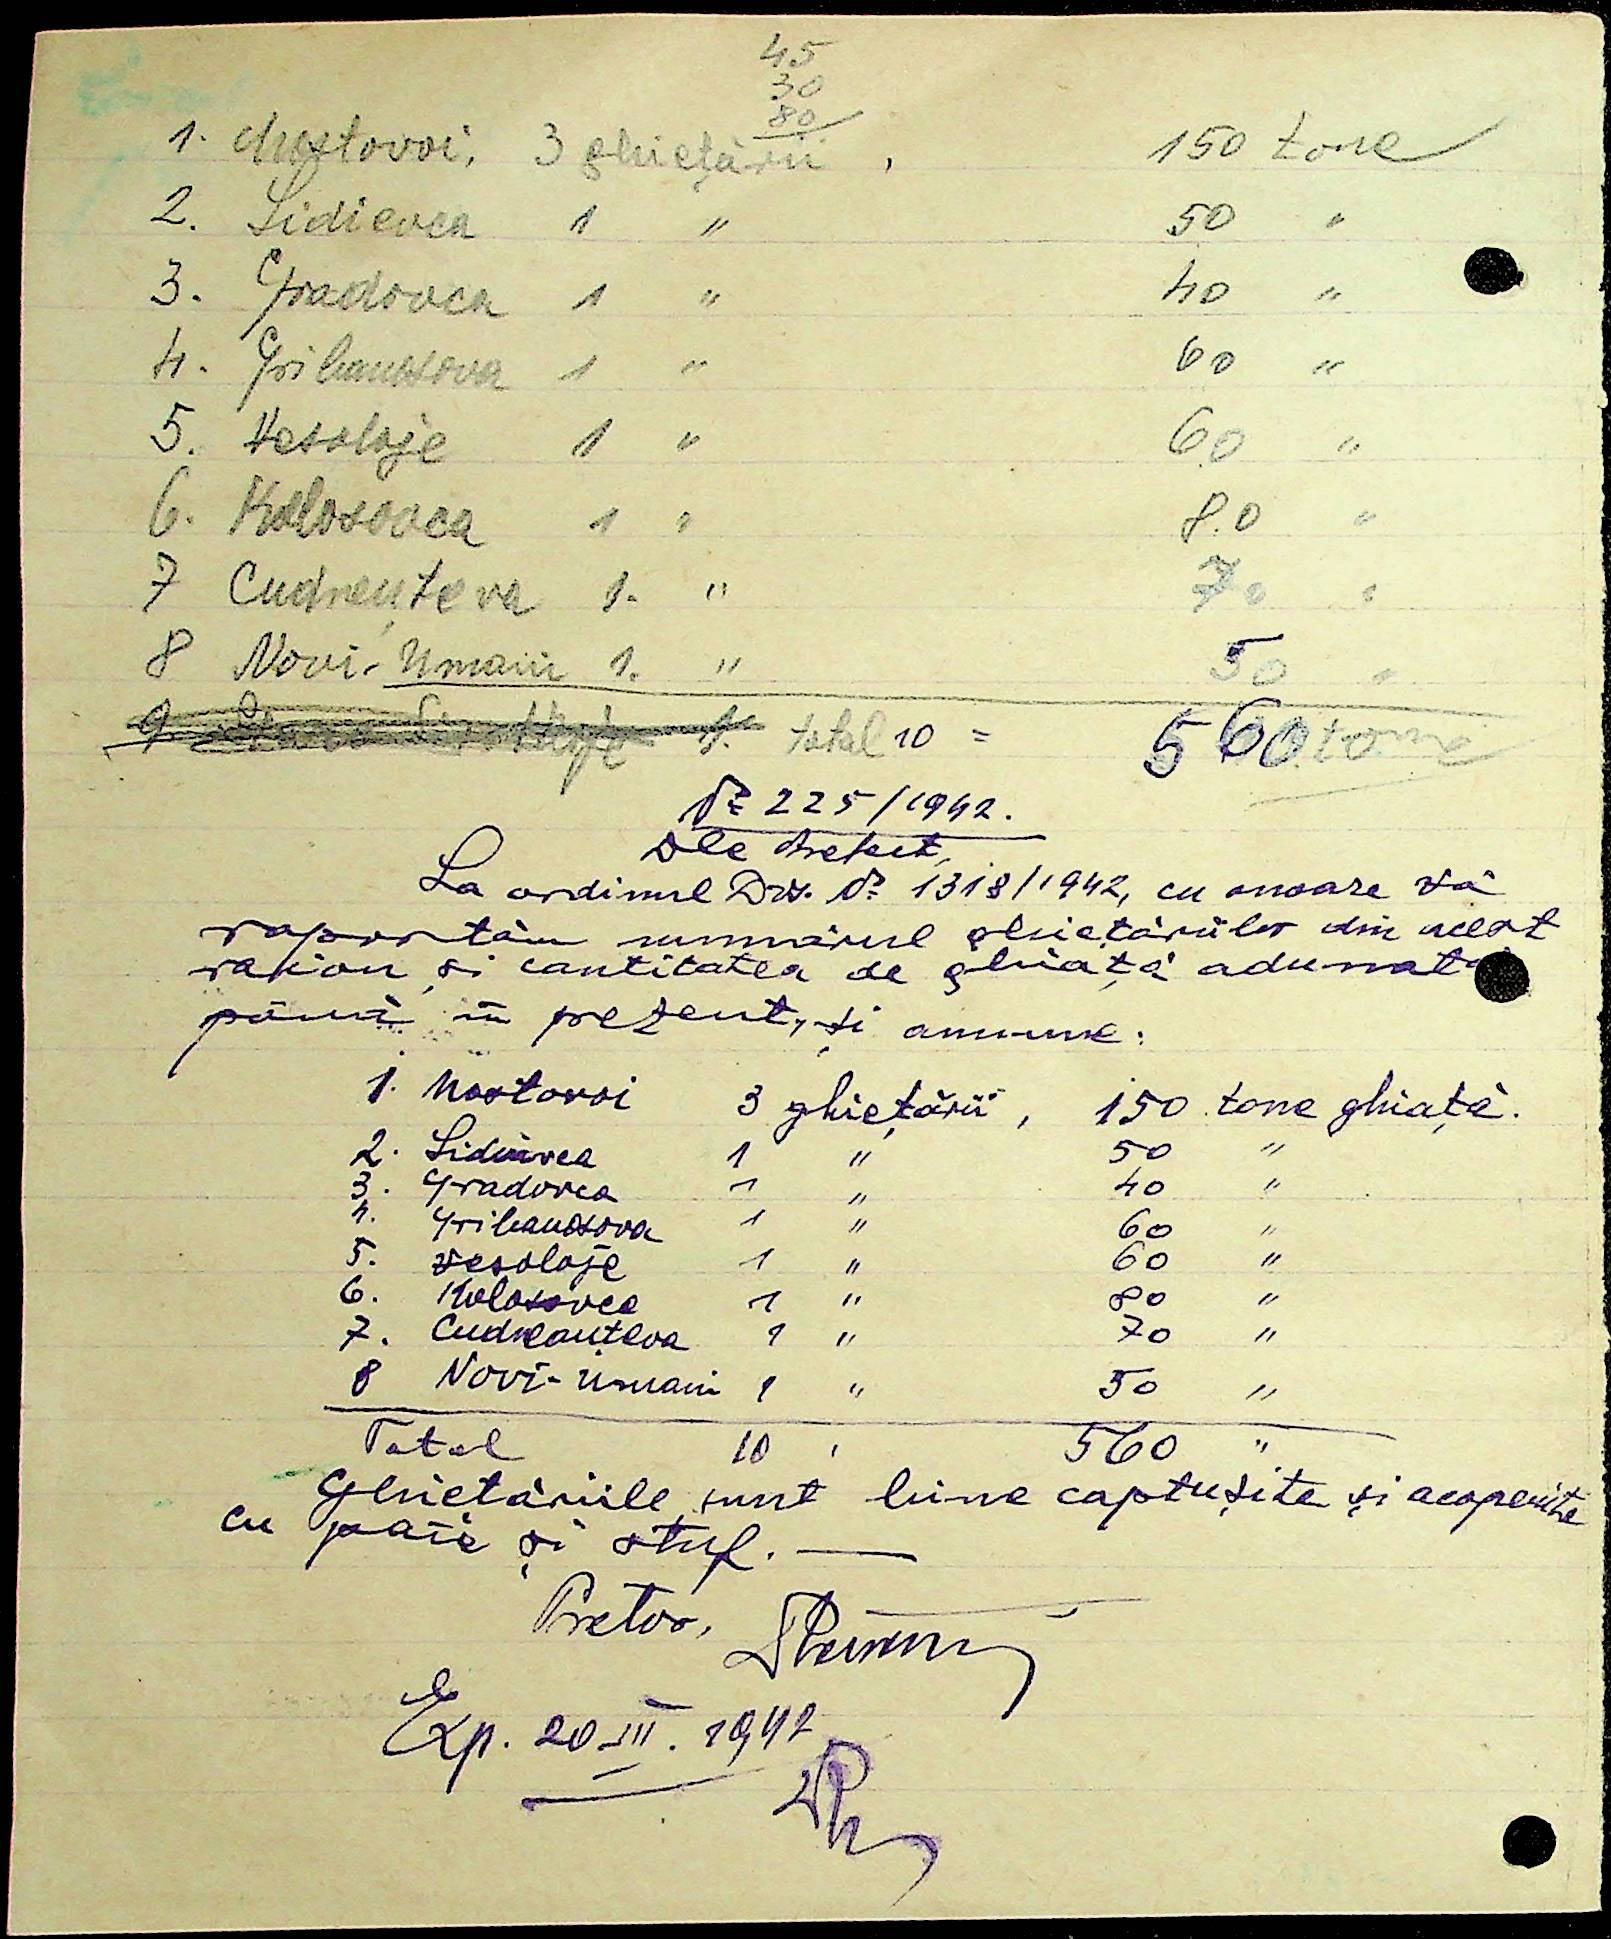 45
30
80
1. Mostovoi, 3 ghețării, 150 tone
2. Lidievca 1 " 50 "
3. Gradovca 1 " 40 "
4. Gribanosova 1 " 60 "
5. Vesoloje 1 " 60 "
6. Kolosovca 1 " 8.0 "
7 Cudreuțeva 1. " 70 "
8 Novi-Umani 1. " 50 "
9 1. total 10 = 560 tone
№ 225/1942.
Dle Prefect,
La ordinul Dvs. № 1318/1942, cu onoare vă
raportăm numărul ghiețăriilor din acest
raion și cantitatea de ghiață adunată
până în prezent, și anume:
1. Mostovoi 3 ghiețării, 150 tone ghiață.
2. Lidievca 1 " 50 "
3. Gradovca 1 " 40 "
4. Gribanosova 1 " 60 "
5. Vesoloje 1 " 60 "
6. Kolosovca 1 " 80 "
7. Cudreauțeva 1 " 70 "
8 Novi-Umani 1 " 50 "
Total 10 , 560 "
Ghiețăriile sunt bine captușite și acoperite
cu paie și stuf. —
Pretor,
Exp. 20 III. 1942